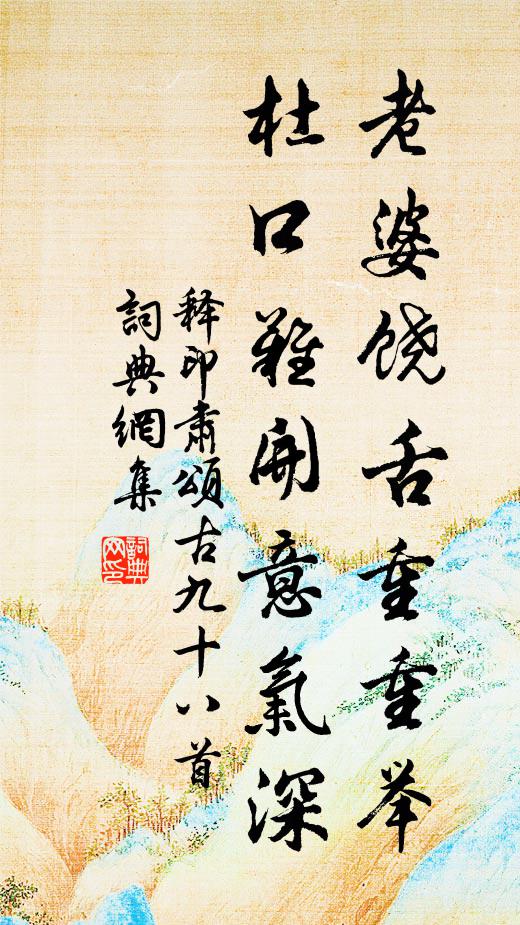 老婆饶舌重重举
杜口难开意氣深
释印肃頌古九十八首
詞典網集
詞典网印